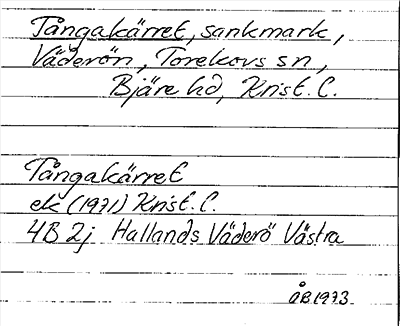 Tångakärret, sankmark,
Väderön, Torekovs sn,
Bjäre hd, Krist. C.
Tångakärret
ek (1971) Krist. C.
4B 2j Hallands Väderö Västra
ÅB 1973